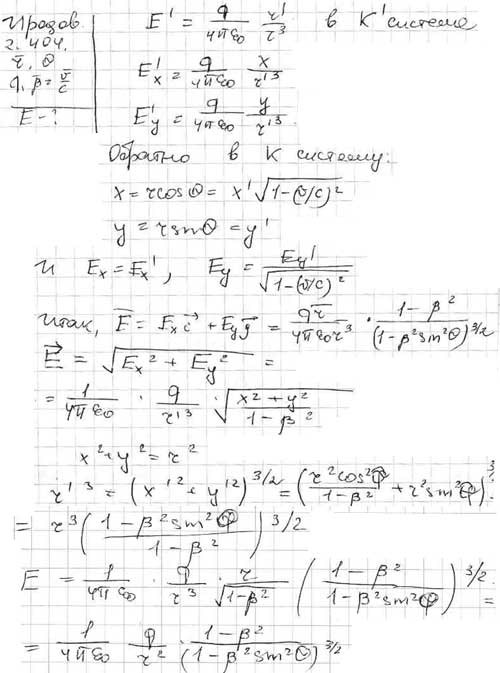 Иродов
2.404.
r̄, θ
q, β̄ = v̄/c
E - ?
E' = q/4πε0 r̄'/r³ в K' системе
E'x = q/4πε0 x/r'³
E'y = q/4πε0 y/r'³
Обратно в K систему:
x = r cosθ = x'√(1-(v/c)²)
y = r sinθ = y'
И Ex = Ex', Ey = Ey'/√(1-(v/c)²)
Итак, E̅ = Ex i⃗ + Ey j⃗ = qr̄/4πε0r³ · (1-β²)/(1-β²sin²θ)^3/2
E⃗ = √(Ex² + Ey²) =
= 1/4πε0 · q/r'³ · √((x²+y²)/(1-β²))
x²+y² = r²
r'³ = (x'²+y'²)^3/2 = (r²cos²φ/(1-β²) + r²sin²φ)³
= r³((1-β²sin²φ)/(1-β²))^3/2
E = 1/4πε0 · q/r³ · r/√(1-β²) ((1-β²)/(1-β²sin²φ))^3/2 =
= 1/4πε0 q/r² · (1-β²)/(1-β²sin²θ)^3/2